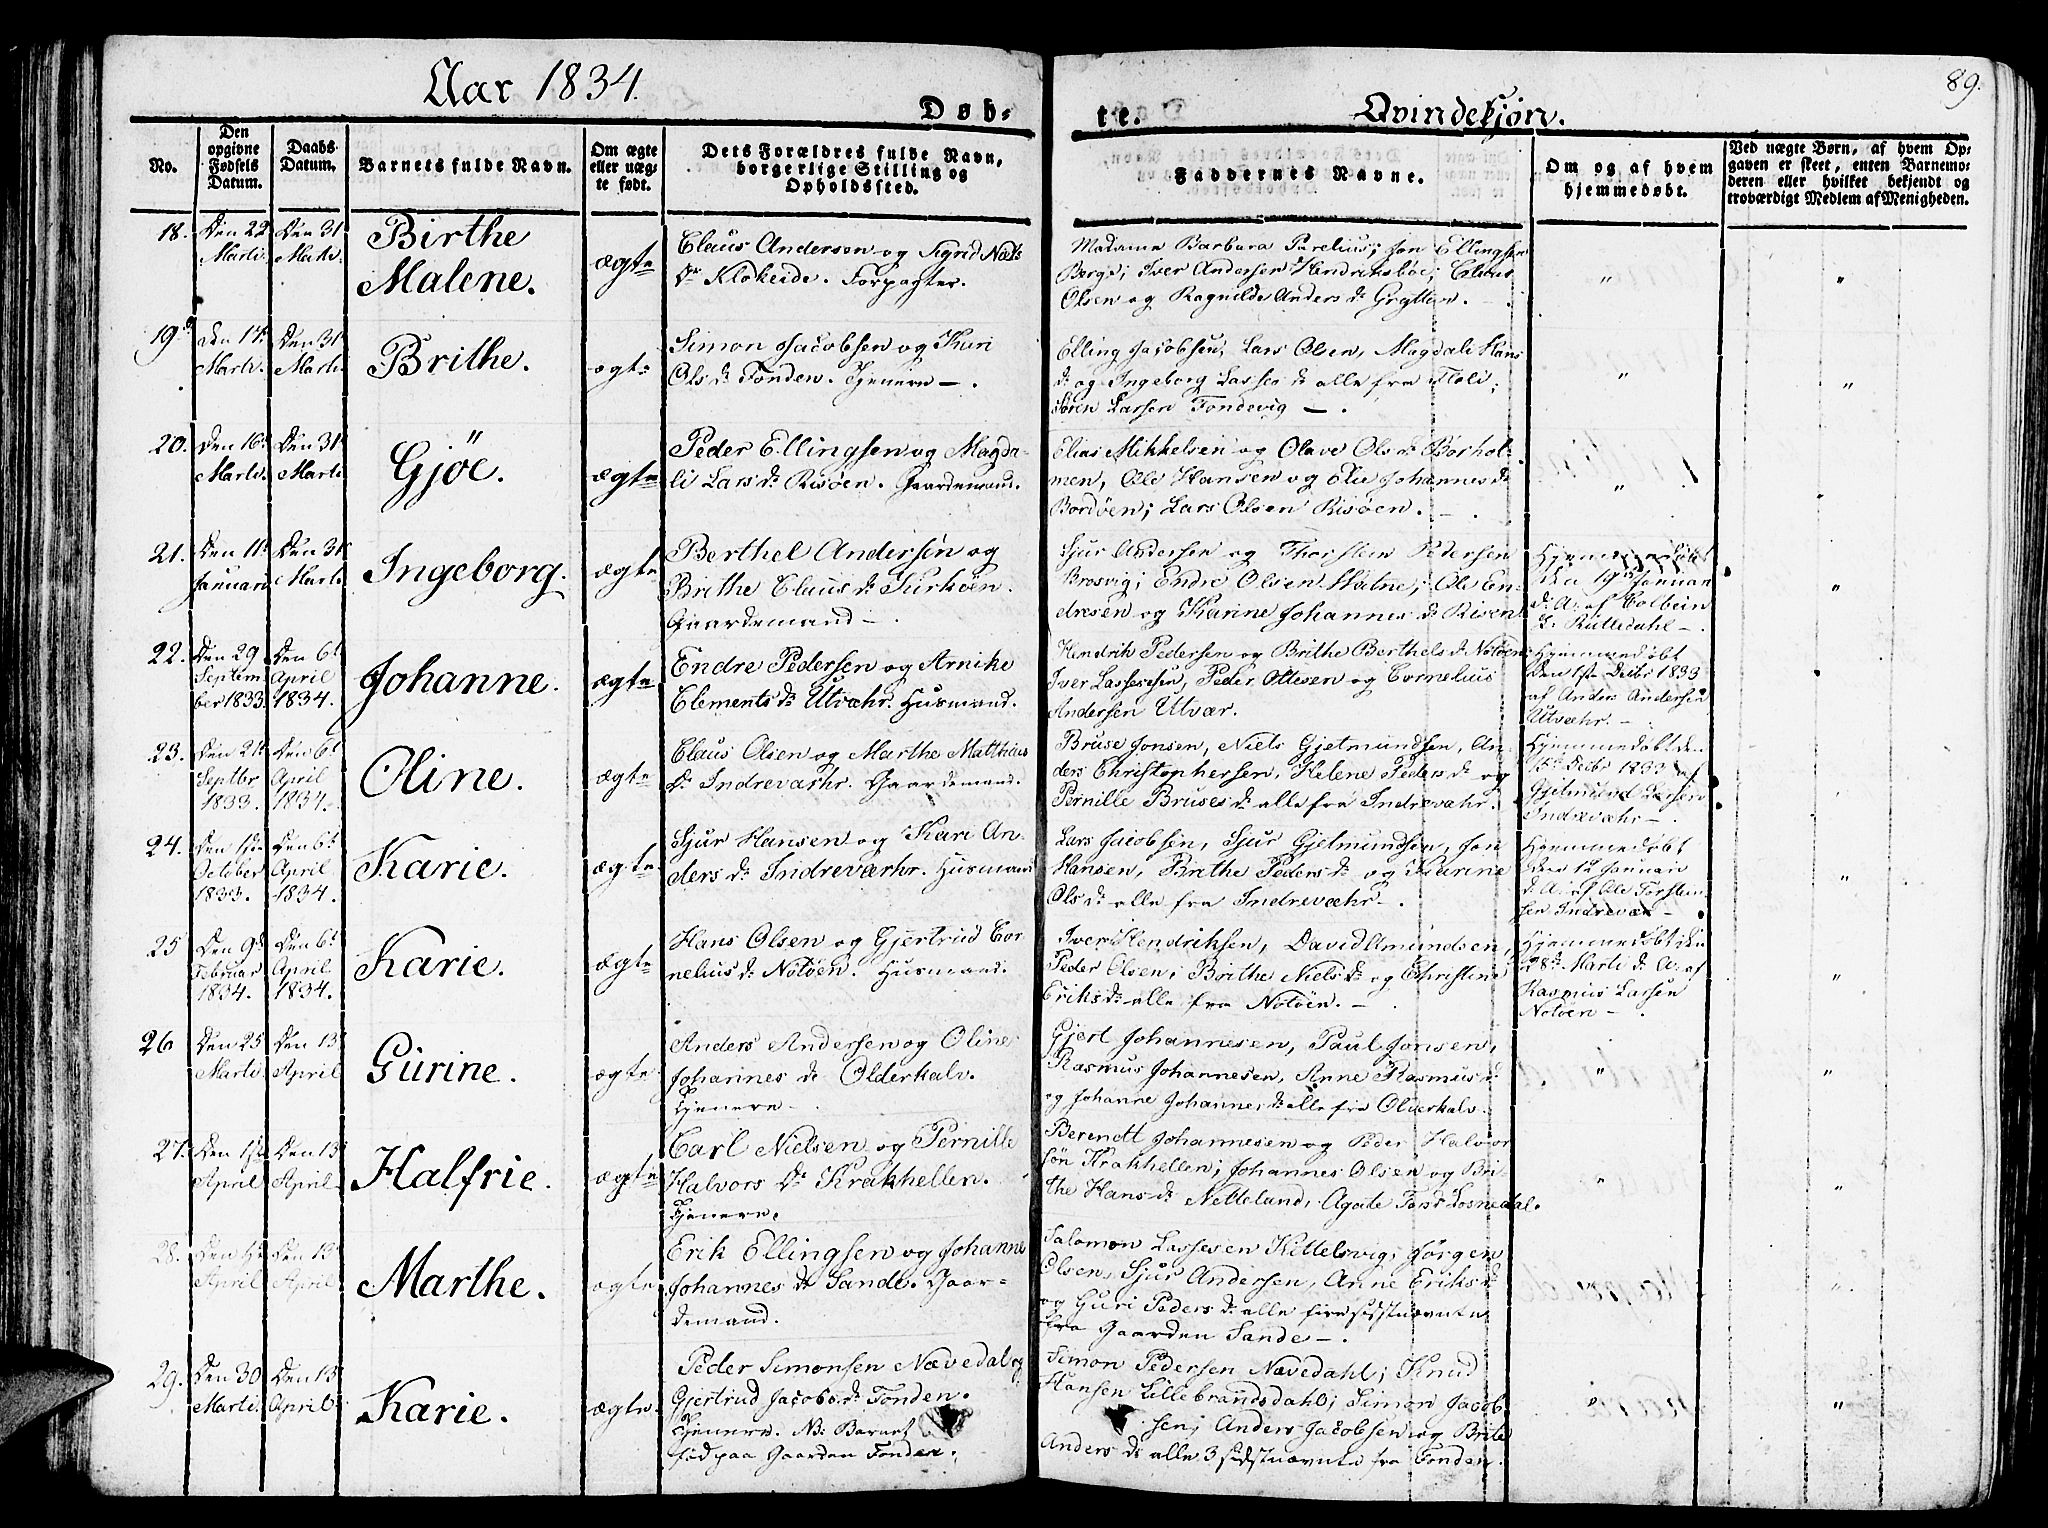 Aar 1834.
Døb-
te.
Qvindekjøn.
89.
No.
Den opgivne Fødsels Datum.
Daabs Datum.
Barnets fulde Navn.
Om ægte eller uæg-te født.
Dets Forældres fulde Navn,
borgerlige Stilling og
Opholdssted.
Faddernes Navne.
Om og af hvem
hjemmedøbt.
Ved uægte Børn, af hvem Op-
gaven er skeet, enten Barnemo-
deren eller hvilket bekjendt og
troværdigt Medlem af Menigheden.
18. Den 22 Den 31
Marti. Marti.
Birthe
Malene.
ægte
Claus Andersen og Sigrid Niels
Dr Klokeide. Forpagter.
Madame Barbara Parelius; Jon Ellingsen
Berge; Iver Andersen Hendriksbøe; Claus
Olsen og Ragnilde Anders Dr Grytten.
"
"
19. Den 17. Den 31
Marti. Marti
Brithe.
ægte
Simon Jacobsen og Kari
Ols dr Fonden. Tjenere.
Elling Jacobsen, Lars Olsen, Magdali Hans
dr og Ingeborg Lasses dr alle fra Floli;
Søren Larsen Fondevig.
"
"
20. Den 16. Den 31
Marti. Marti
Gjøe.
ægte
Peder Ellingsen og Magda-
li Lars dr Risøen. Gaardemand.
Elias Mikkelsen og Olave Ols dr Børhol-
men, Ole Hansen og Elie Johannes dr
Bordøen; Lars Olsen Risøen.
"
"
21. Den 11. Den 31
Januari Marti
Ingeborg.
ægte
Berthel Andersen og
Brithe Claus dr Surkøen.
Gaardemand.
Sjur Andersen og Thorstein Pedersen
Brosvig; Endre Olsen Hatne; Ole En-
dresen og Karine Johannes dr Risen.
Hjemmedøbt
den 19 Januari
d. A. af Colbein
Rutledahl.
"
22. Den 29 Den 6t
Septem April
ber 1833. 1834.
Johanne.
ægte
Endre Pedersen og Arnike
Clements dr Utvæhr. Husmand.
Hendrik Pedersen og Brithe Berthels dr Notøen;
Iver Lassesen, Peder Ottesen og Cornelius
Andersen Utvær.
Hjemmedøbt
den 1ste Decbr 1833
af Anders Andersen
Utvæhr.
23. Den 21. Den 6t
Septbr April
1833. 1834.
Oline.
ægte
Claus Olsen og Marthe Matthias
Dr Indreværhr. Gaardemand.
Bruse Jonsen, Niels Gjetmundsen, An-
ders Christophersen, Helene Peders dr og
Pernille Bruses dr alle fra Indrevæhr.
Hjemmedøbt den
15de Decbr 1833 af
Gjetmund Larsen
Indrevæhr.
24. Den Den 6t
October April
1833. 1834.
Karie.
ægte
Sjur Hansen og Kari An-
ders dr Indreværhr. Husmand
Lars Jacobsen, Sjur Gjetmundsen, Jon
Hansen, Brithe Peders dr og Karine
Ols dr alle fra Indrevæhr.
Hjemmedøbt
den 12 Januari
d. A. af Ole Torsten-
sen Indrevær
"
25 Den 9d Den 6t
Februar April
1834. 1834.
Karie.
ægte
Hans Olsen og Gjertrud Cor
nelius dr Notøen. Husmand.
Iver Hendriksen, David Amundsen,
Peder Olsen, Brithe Niels dr og Christine
Eriks dr alle fra Notøen.
Hjemmedøbt den
28de Marti d. A. af
Rasmus Larsen
Notøen
"
26 Den 25 Den 13
Marti. April
Gurine.
ægte
Anders Andersen og Oline
Johannes dr Olderkalv.
Tjenere
Gjert Johannesen, Paul Jonsen,
Rasmus Johannesen, Anne Rasmus dr
og Johanne Johannes dr alle fra Olderkalv.
"
"
27. Den Den 13
April April
Halfrie.
ægte
Carl Nielsen og Pernille
Halvors Dr Krakhellen.
Tjenere.
Berendt Johannesen og Peder Halvor
søn Krakhellen; Johannes Olsen og Bri-
the Hans dr Netteland; Agate Losnedal.
"
"
28. Den Den 13
April April
Marthe.
ægte
Erik Ellingsen og Johanne
Johannes dr Sande. Gaar-
demand.
Salomon Lassesen Kittelsvig; Jørgen
Olsen, Sjur Andersen, Anne Eriks dr
og Guri Peders dr alle fire sidstnævnte
fra Gaarden Sande.
"
29. Den 30 Den 13
Marti. April
Karie.
ægte.
Peder Simonsen Nævedal og
Gjertrud Jacobs dr Fonden.
Tjenere. NB: Barnet
fød paa Gaarden Fonden.
Simon Pedersen Nævedahl; Knud
Hansen Lillebrandsdahl; Simon Jacob-
sen; Anders Jacobsen og Brite
Anders dr alle 3 sidstnævnte fra Fonden.
"
"